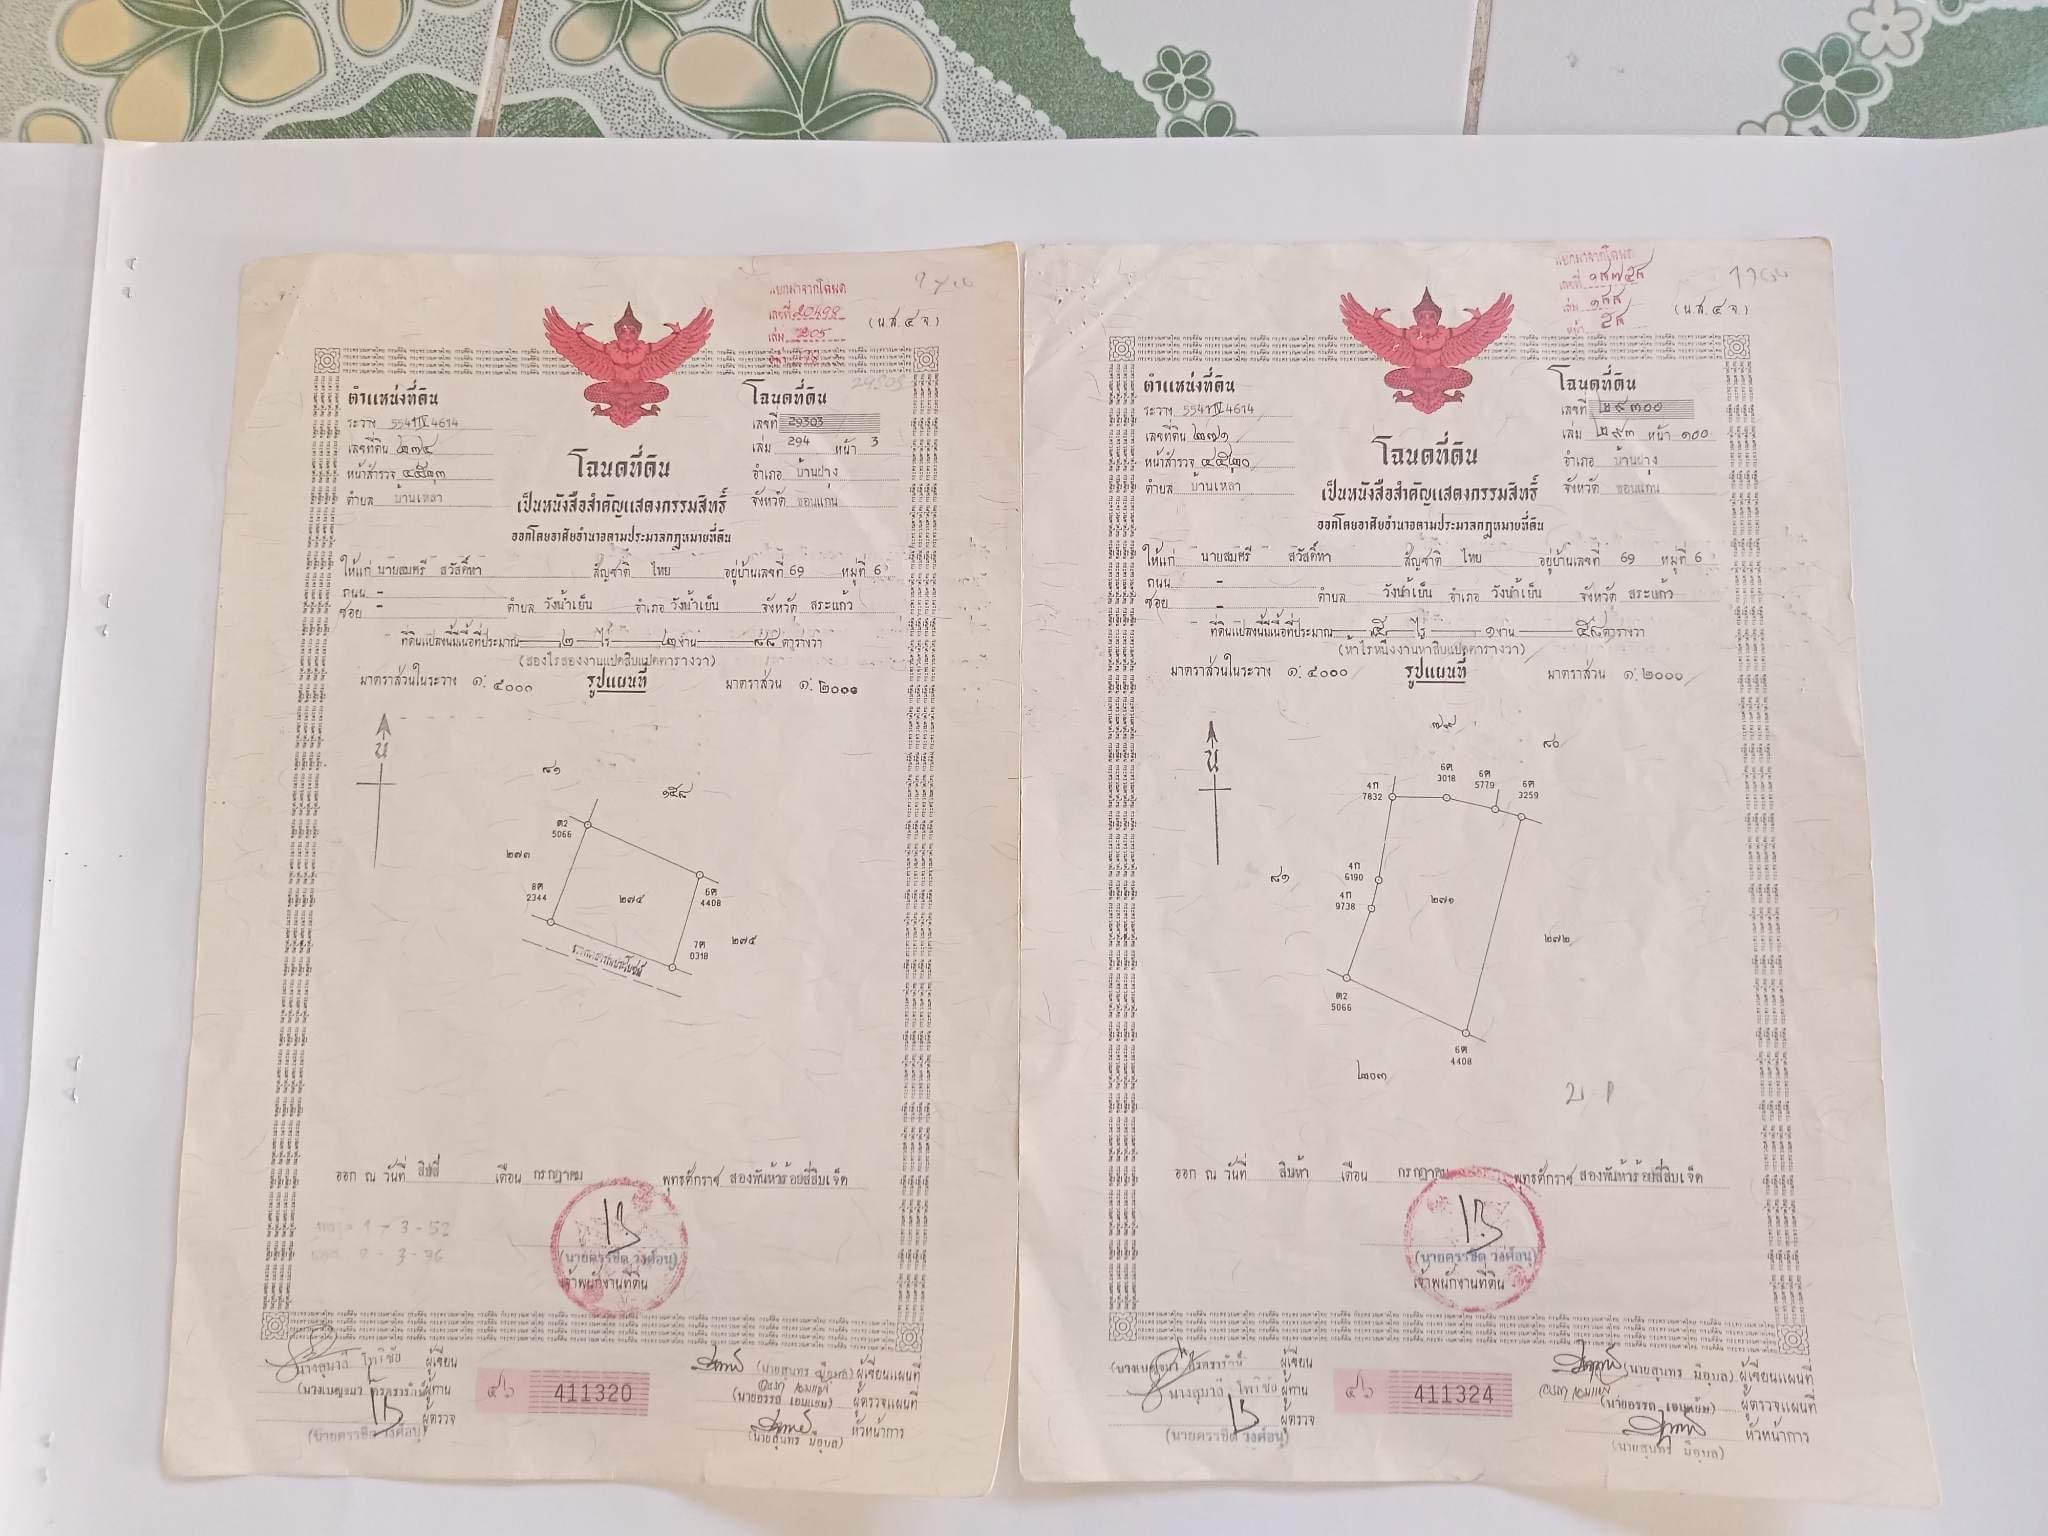 แยกมาจากโฉนด
เลขที่ 20498
เล่ม 205
(น.ส.๔ จ.)
ตำแหน่งที่ดิน
ระวาง 5541 IV 4614
เลขที่ดิน ๒๗๔
หน้าสำรวจ ๔๕๒๓
ตำบล บ้านเหล่า
โฉนดที่ดิน
เลขที่ 29303
เล่ม 294 หน้า 3
อำเภอ บ้านฝาง
จังหวัด ขอนแก่น
โฉนดที่ดิน
เป็นหนังสือสำคัญแสดงกรรมสิทธิ์
ออกโดยอาศัยอำนาจตามประมวลกฎหมายที่ดิน
ให้แก่ นายสมศรี สวัสดิ์ทา สัญชาติ ไทย อยู่บ้านเลขที่ 69 หมู่ที่ 6
ถนน -
ซอย - ตำบล วังน้ำเย็น อำเภอ วังน้ำเย็น จังหวัด สระแก้ว
ที่ดินแปลงนี้มีเนื้อที่ประมาณ ๒ ไร่ ๒ งาน ๘๘ ตารางวา
(สองไร่สองงานแปดสิบแปดตารางวา)
มาตราส่วนในระวาง ๑:๔๐๐๐ รูปแผนที่ มาตราส่วน ๑:๒๐๐๐
น
๘๑
๑๕๘
ต2
5066
๒๗๓
8ค
2344
๒๗๔
6ค
4408
7ค
0318
๒๗๕
ออก ณ วันที่ สิบสี่ เดือน กรกฎาคม พุทธศักราช สองพันห้าร้อยสี่สิบเจ็ด
(นายครรชิต วงศ์อนุ)
เจ้าพนักงานที่ดิน
นางสุมาลี โพธิ์ชัย ผู้เขียน
ผู้ทาน
ผู้ตรวจ
(นายครรชิต วงศ์อนุ)
๔๖ 411320
(นายสุนทร มีอุบล) ผู้เขียนแผนที่
ผู้ตรวจแผนที่
หัวหน้าการ
(นายสุนทร มีอุบล)
แยกมาจากโฉนด
(น.ส.๔ จ.)
ตำแหน่งที่ดิน
ระวาง 5541 IV 4614
เลขที่ดิน ๒๗๑
หน้าสำรวจ ๔๕๒๐
ตำบล บ้านเหล่า
โฉนดที่ดิน
เลขที่ ๒๙๓๐๐
เล่ม ๒๙๓ หน้า ๑๐๐
อำเภอ บ้านฝาง
จังหวัด ขอนแก่น
โฉนดที่ดิน
เป็นหนังสือสำคัญแสดงกรรมสิทธิ์
ออกโดยอาศัยอำนาจตามประมวลกฎหมายที่ดิน
ให้แก่ นายสมศรี สวัสดิ์ทา สัญชาติ ไทย อยู่บ้านเลขที่ 69 หมู่ที่ 6
ถนน -
ซอย - ตำบล วังน้ำเย็น อำเภอ วังน้ำเย็น จังหวัด สระแก้ว
ที่ดินแปลงนี้มีเนื้อที่ประมาณ ๕ ไร่ ๑ งาน ๕๘ ตารางวา
(ห้าไร่หนึ่งงานห้าสิบแปดตารางวา)
มาตราส่วนในระวาง ๑:๔๐๐๐ รูปแผนที่ มาตราส่วน ๑:๒๐๐๐
น
๗๙
๘๐
4ก
7832
6ค
3018
6ค
5779
6ค
3259
๘๑
4ก
6190
4ก
9738
๒๗๑
๒๗๒
ต2
5066
6ค
4408
๒๐๓
ออก ณ วันที่ สิบห้า เดือน กรกฎาคม พุทธศักราช สองพันห้าร้อยสี่สิบเจ็ด
(นายครรชิต วงศ์อนุ)
เจ้าพนักงานที่ดิน
ผู้เขียน
นางสุมาลี โพธิ์ชัย ผู้ทาน
ผู้ตรวจ
(นายครรชิต วงศ์อนุ)
๔๖ 411324
(นายสุนทร มีอุบล) ผู้เขียนแผนที่
ผู้ตรวจแผนที่
หัวหน้าการ
(นายสุนทร มีอุบล)